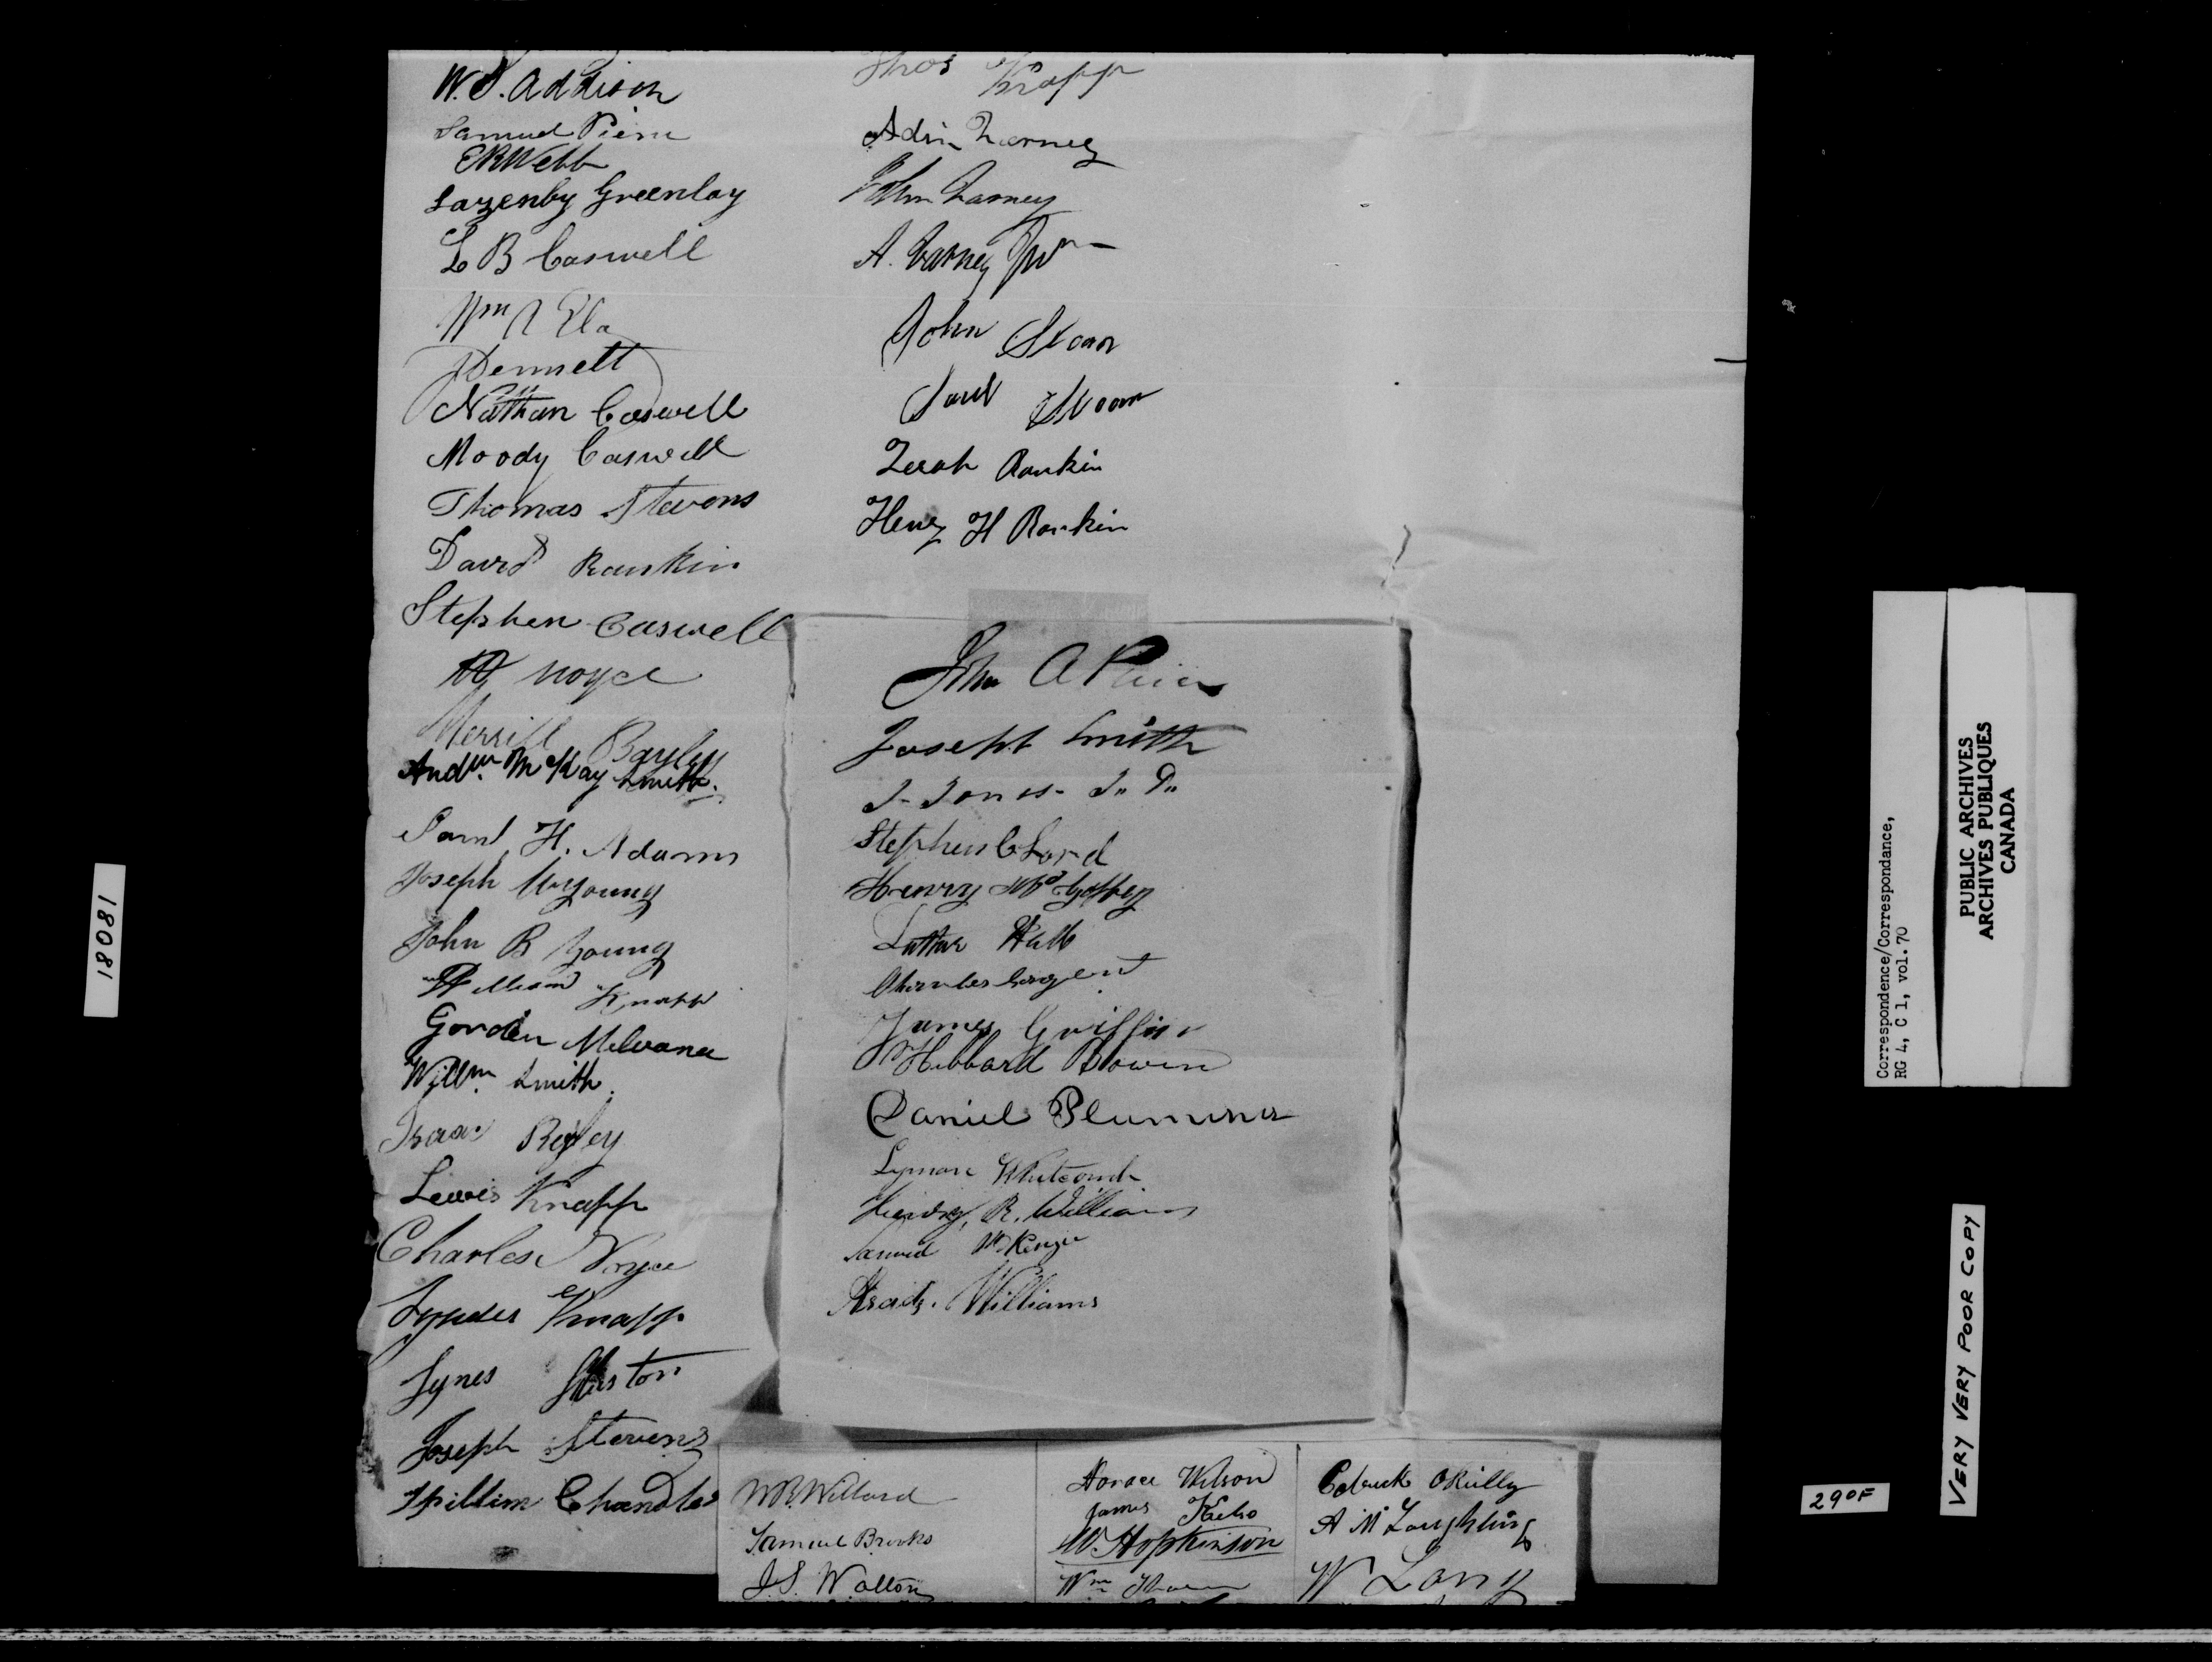 W.S. Addison
Samuel
E R Webb
Lazenby Greenlay
L B Caswell
Wm Ela
J Dennett
Nathan Caswell
Moody Caswell
Thomas Stevens
David Rankin
Stephen Caswell
Noyce
Merrill Bayley
Andw. McKay Smith.
Saml. H. Adams
Joseph Young
John B Young
William Knapp
Gordon Melvana
Willm. Smith.
Isaac
Lewis Knapp
Charles Noyce
Knapp
Joseph Stevens
Chandler
Thos Knapp
John
A.
John Sloan
Sloan
Zerah Rankin
Henry H Rankin
John A
Joseph Smith
J. Jones. J. P.
Stephen C Lord
Henry
Luther Hall
Charles Sargent
James Griffin
Hibbard Bowen
Daniel Plummer
Lyman Whitcomb
Henry R. Williams
Samuel McKenzie
Williams
W B. Willard
Samuel Brooks
J. S. Walton
Horace Wilson
James Kelso
W. Hopkinson
Wm
OReilly
A McLaughling
W Lang
18081
Correspondence/Correspondance,
RG 4, C 1, vol. 70
PUBLIC ARCHIVES
ARCHIVES PUBLIQUES
CANADA
290F
VERY VERY POOR COPY